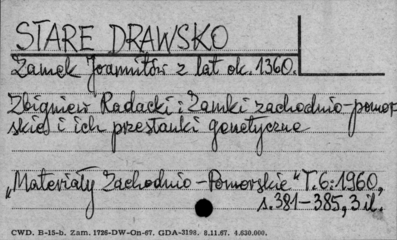 STARE DRAWSKO
Zamek Joannitów z lat ok. 1360.
Zbigniew Radacki: Zamki zachodnio-pomor
skie i ich przesłanki genetyczne
„Materiały Zachodnio-Pomorskie" T.6:1960,
s.381-385, 3 il.
CWD. B-15-b. Zam. 1726-DW-On-67. GDA-3198. 8.11.67. 4.630.000.